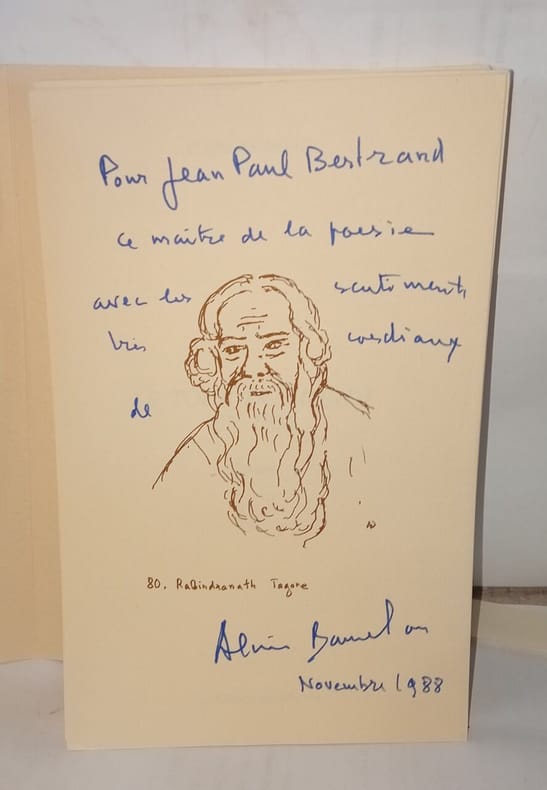 Pour Jean Paul Bertrand
ce maître de la poesie
avec les sentiments
très cordiaux
de
80. Rabindranath Tagore
Novembre 1988